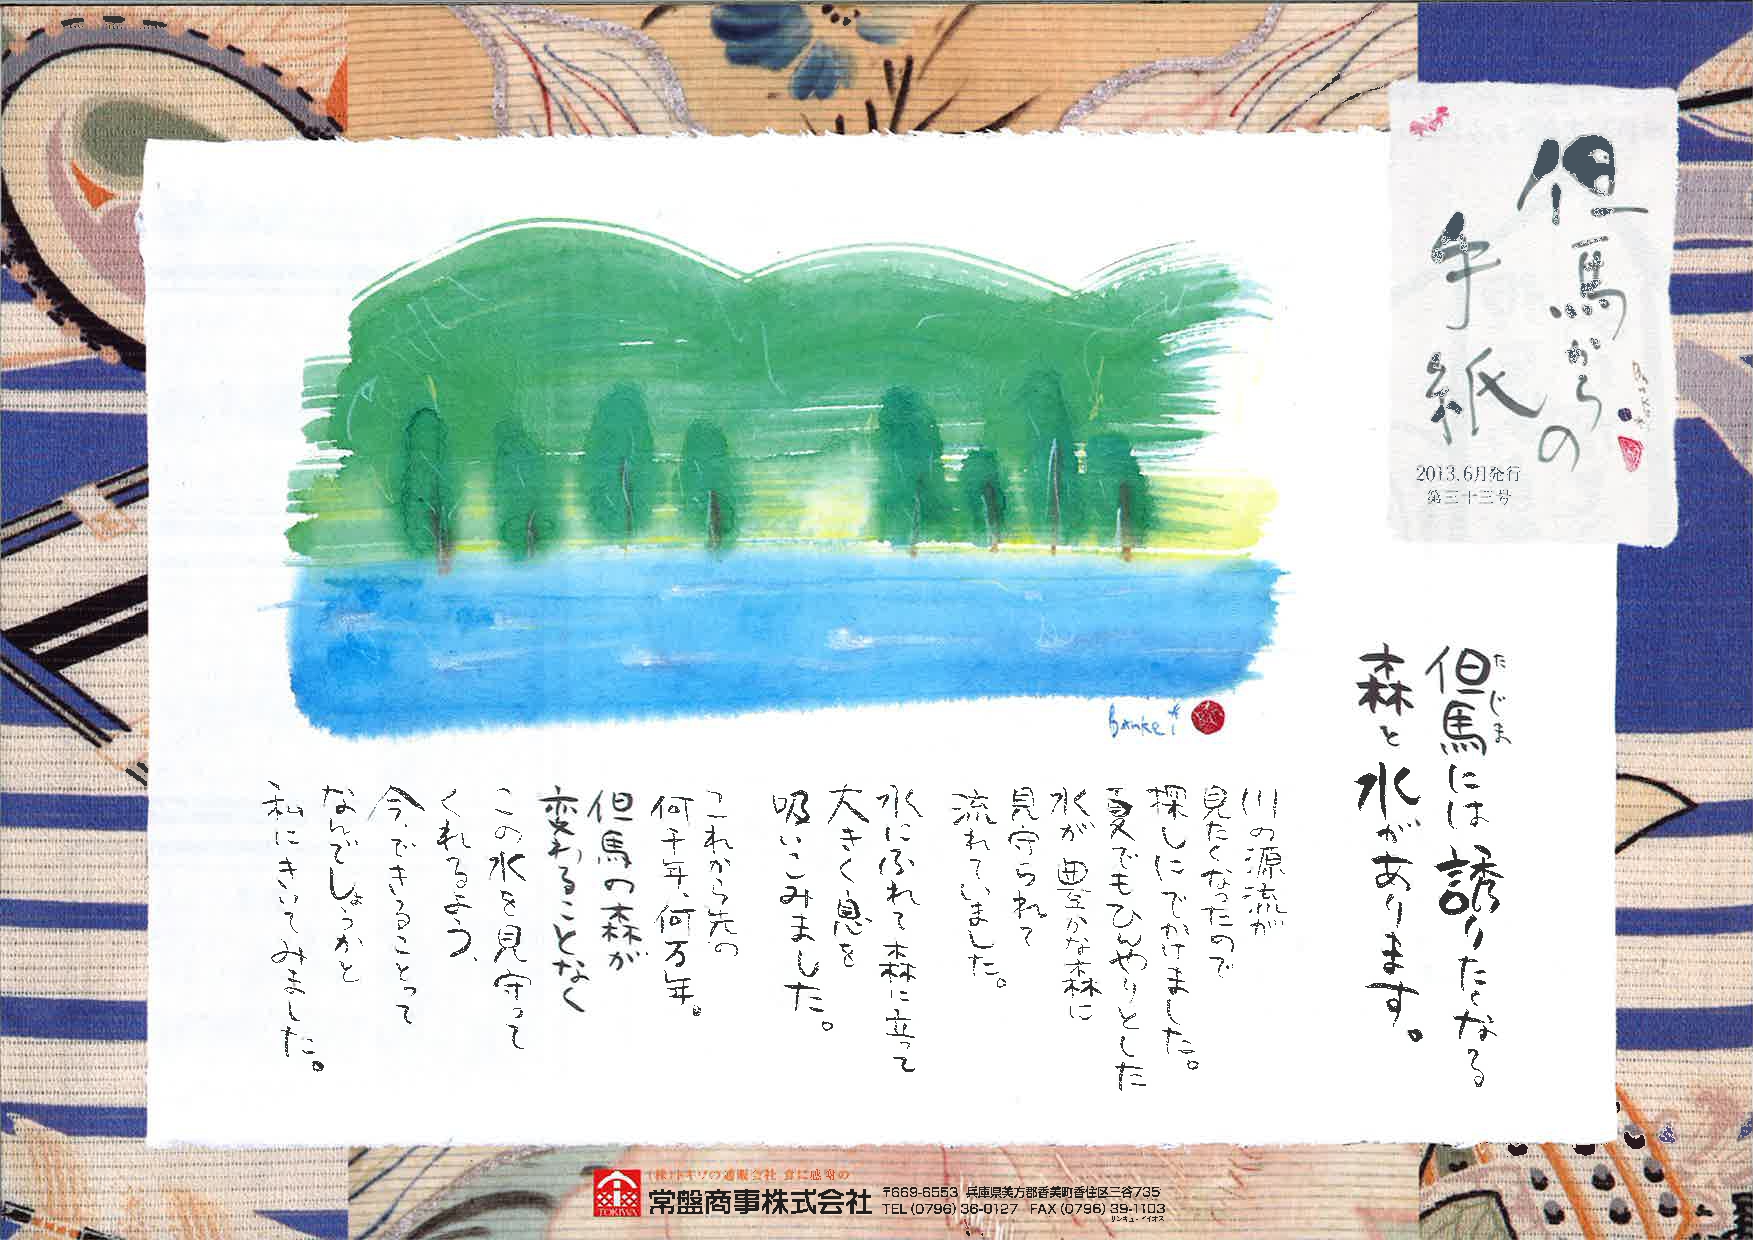 但馬からの
手紙
2013.6月発行
第三十三号
但馬には誇りたくなる
たじま
森と水があります。
川の源流が
見たくなったので
探しにでかけました。
夏でもひんやりとした
水が豊かな森に
見守られて
流れていました。
水にふれて森に立って
大きく息を
吸いこみました。
これから先の
何千年、何万年。
但馬の森が
変わることなく
この水を見守って
くれるよう、
今、できることって
なんでしょうかと
私にきいてみました。
bankei
(株)トキワの通販会社 賞に感謝の
TOKIWA
常盤商事株式会社
〒669-6553 兵庫県美方郡香美町香住区三谷735
TEL(0796)36-0127 FAX(0796)39-1103
サンキュー・イイオス